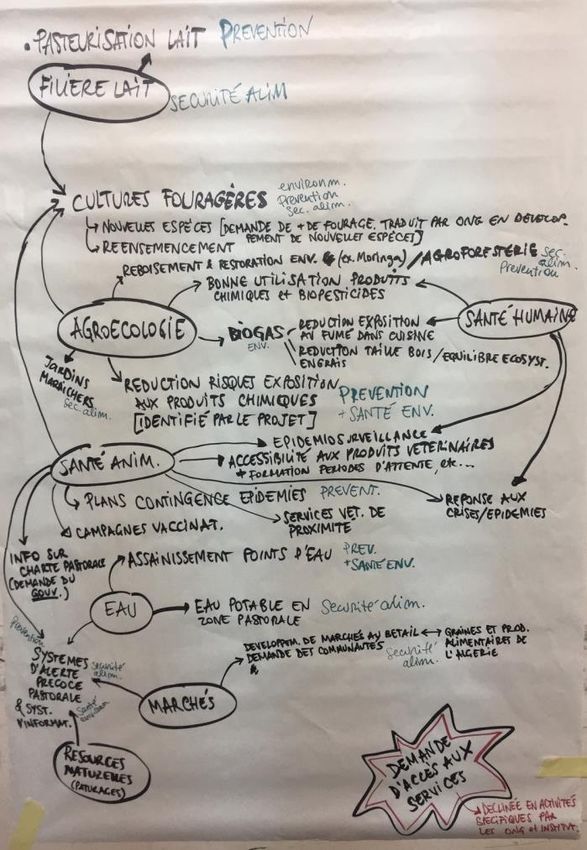 • PASTEURISATION LAIT PREVENTION
FILIERE LAIT SECURITÉ ALIM
CULTURES FOURAGÈRES environm.
Prevention
sec. alim.
NOUVELLES ESPÈCES [DEMANDE DE + DE FOURAGE. TRADUIT PAR ONG EN DEVELOP
PEMENT DE NOUVELLES ESPÈCES]
REENSEMENCEMENT
REBOISEMENT & RESTORATION ENV. (ex. Moringa) / AGROFORESTERIE sec.
alim.
Prevention
BONNE UTILISATION PRODUITS
CHIMIQUES et BIOPESTICIDES
AGROECOLOGIE
SANTÉ HUMAINE
BIOGAS
ENV.
REDUCTION EXPOSITION
AU FUME DANS CUISINE
REDUCTION TAILLE BOIS / EQUILIBRE ECOSYST.
ENGRAIS
JARDINS
MARAÎCHERS
sec. alim.
REDUCTION RISQUES EXPOSITION
AUX PRODUITS CHIMIQUES
[IDENTIFIÉ PAR LE PROJET]
PREVENTION
+ SANTÉ ENV.
SANTÉ ANIM.
EPIDEMIOSURVEILLANCE
ACCESSIBILITÉ AUX PRODUITS VETERINAIRES
+ FORMATION PERIODES D'ATTENTE, etc...
PLANS CONTINGENCE EPIDEMIES PREVENT.
REPONSE AUX
CRISES/EPIDEMIES
CAMPAGNES VACCINAT.
SERVICES VET. DE
PROXIMITE
INFO SUR
CHARTE PASTORALE
(DEMANDE DU
GOUV.)
ASSAINISSEMENT POINTS D'EAU PREV.
+ SANTÉ ENV.
EAU
EAU POTABLE EN
ZONE PASTORALE
Securité alim.
Prevention
SYSTEMES
D'ALERTE
PRECOCE
PASTORALE
& SYST.
D'INFORMAT.
securité
alim.
Santé
DEVELOPPM. DE MARCHÉS AU BETAIL ↔ GRAINES ET PROD.
DEMANDE DES COMMUNAUTES
&
ALIMENTAIRES DE
L'ALGERIE
securité
alim.
MARCHÉS
RESOURCES
NATURELLES
(PATURAGES)
DEMANDE
D'ACCÈS AUX
SERVICES
DECLINÉE EN ACTIVITÉS
SPECIFIQUES PAR
LES ONG et INSTITUT.